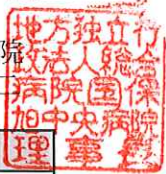 院
地方独立行
政法人総合
病院国保
旭中央病院
理事